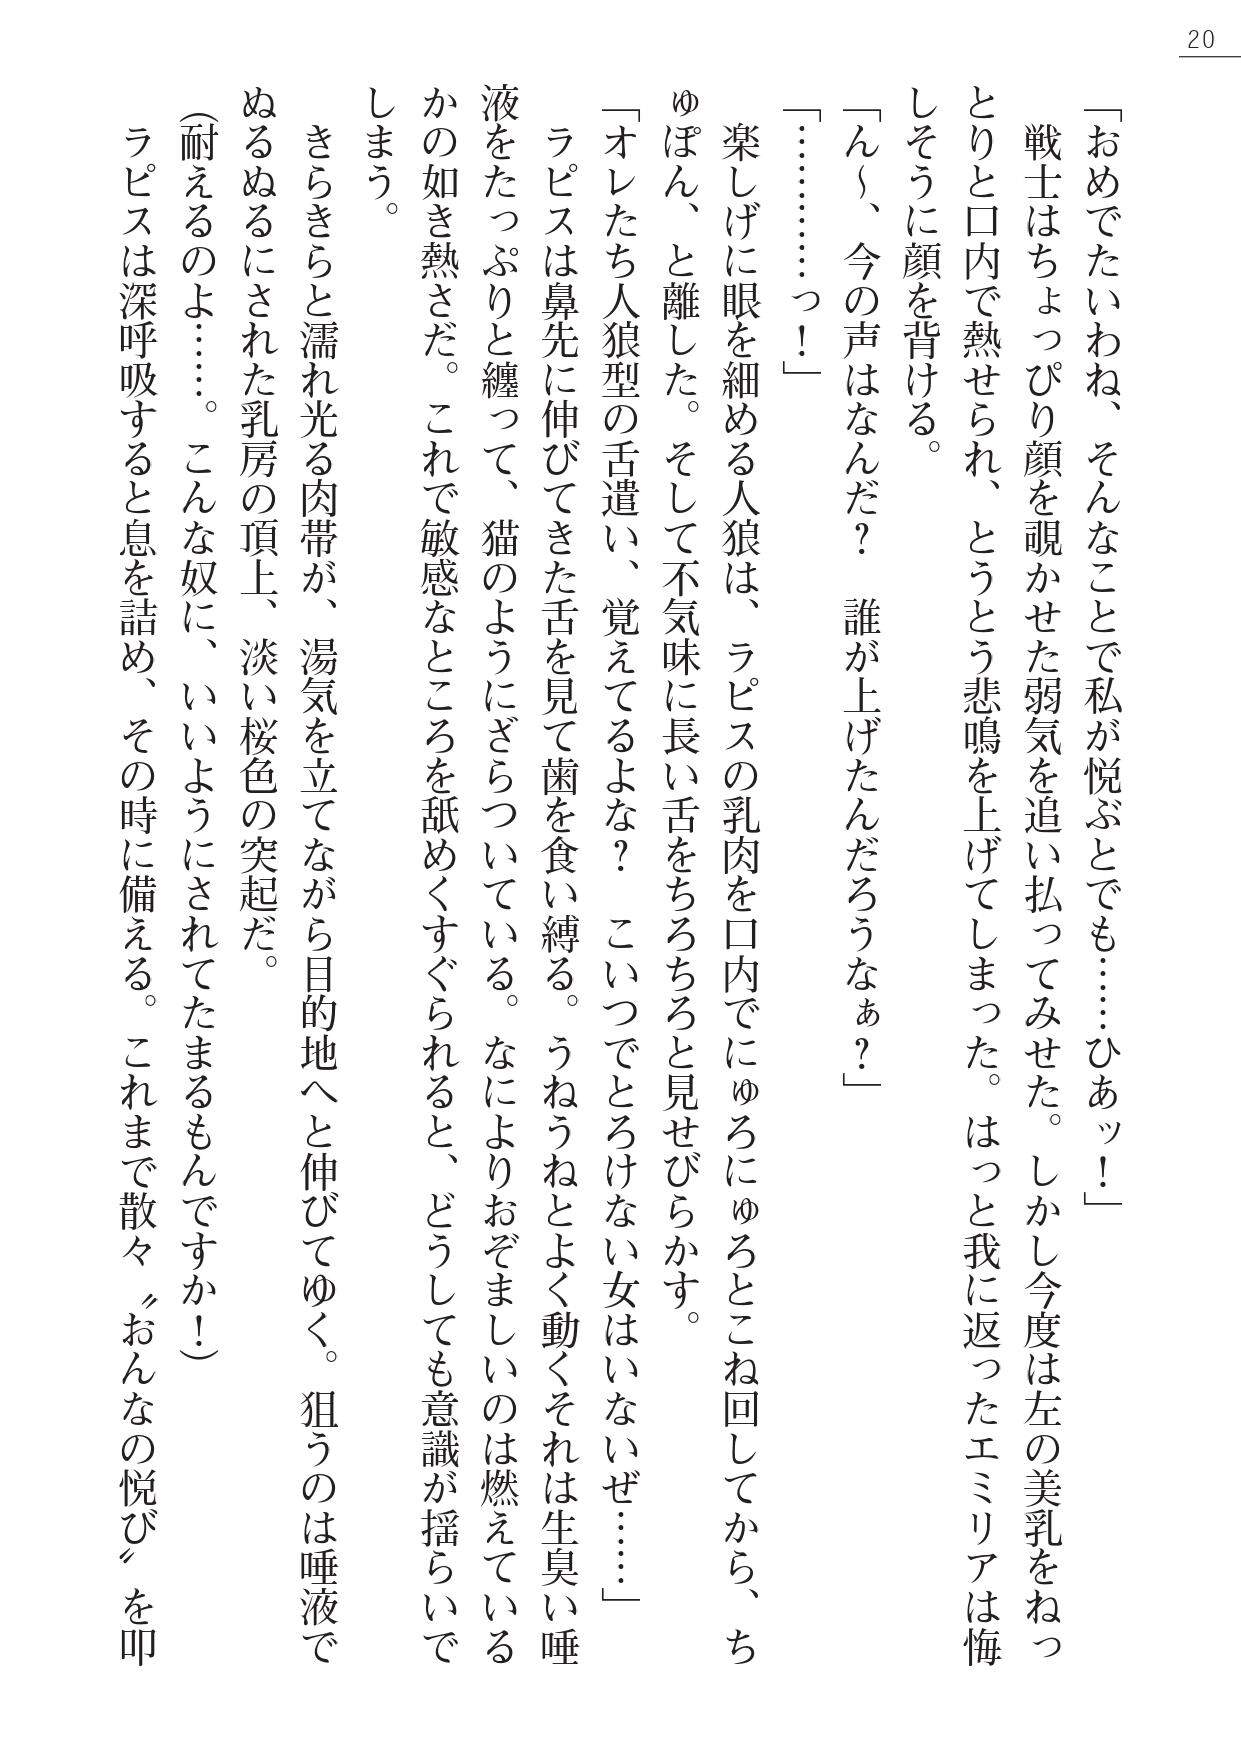 20
「おめでたいわね、そんなことで私が悦ぶとでも……ひあッ！」
　戦士はちょっぴり顔を覗かせた弱気を追い払ってみせた。しかし今度は左の美乳をねっ
とりと口内で熱せられ、とうとう悲鳴を上げてしまった。はっと我に返ったエミリアは悔
しそうに顔を背ける。
「ん～、今の声はなんだ？　誰が上げたんだろうなぁ？」
「…………っ！」
　楽しげに眼を細める人狼は、ラピスの乳肉を口内でにゅろにゅろとこね回してから、ち
ゅぽん、と離した。そして不気味に長い舌をちろちろと見せびらかす。
「オレたち人狼型の舌遣い、覚えてるよな？　こいつでとろけない女はいないぜ……」
　ラピスは鼻先に伸びてきた舌を見て歯を食い縛る。うねうねとよく動くそれは生臭い唾
液をたっぷりと纏って、猫のようにざらついている。なによりおぞましいのは燃えている
かの如き熱さだ。これで敏感なところを舐めくすぐられると、どうしても意識が揺らいで
しまう。
　きらきらと濡れ光る肉帯が、湯気を立てながら目的地へと伸びてゆく。狙うのは唾液で
ぬるぬるにされた乳房の頂上、淡い桜色の突起だ。
（耐えるのよ……。こんな奴に、いいようにされてたまるもんですか！）
　ラピスは深呼吸すると息を詰め、その時に備える。これまで散々〝おんなの悦び〟を叩